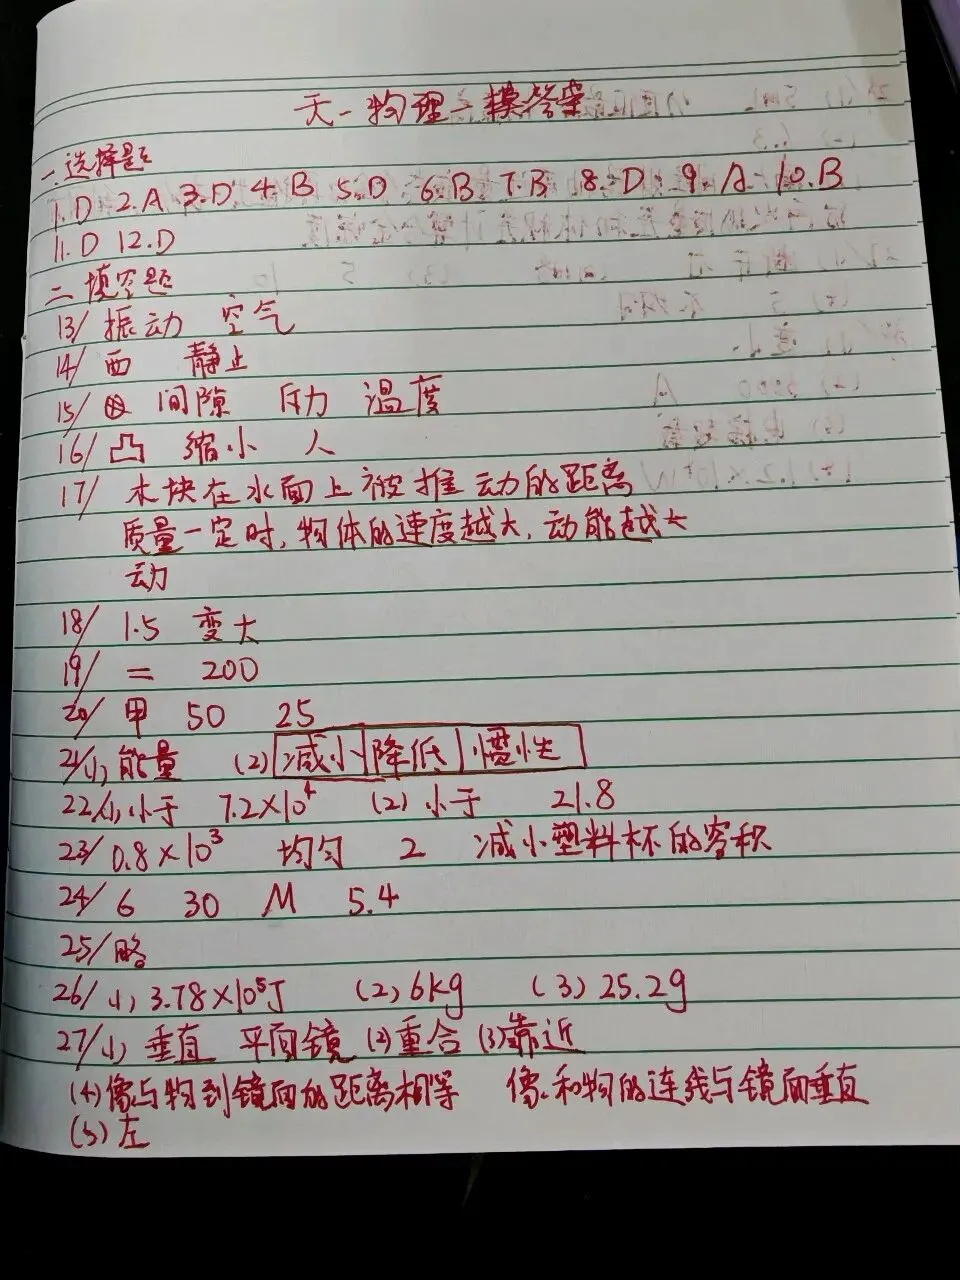 天一物理一模答案
一.选择题
1.D 2.A 3.D 4.B 5.D 6.B 7.B 8.D 9.A 10.B
11.D 12.D
二填空题
13/ 振动 空气
14/ 西 静止
15/ 间隙 压力 温度
16/ 凸 缩小 人
17/ 木块在水面上被推动的距离
质量一定时,物体的速度越大,动能越大
动
18/ 1.5 变大
19/ = 200
20/ 甲 50 25
21/(1)能量 (2)减小 降低 惯性
22/(1)小于 7.2×10⁴ (2)小于 21.8
23/ 0.8×10³ 均匀 2 减小塑料杯的容积
24/ 6 30 M 5.4
25/ 略
26/(1)3.78×10⁵J (2)6kg (3)25.2g
27/(1)垂直 平面镜 (2)重合 (3)靠近
(4)像与物到镜面的距离相等 像和物的连线与镜面垂直
(5)左